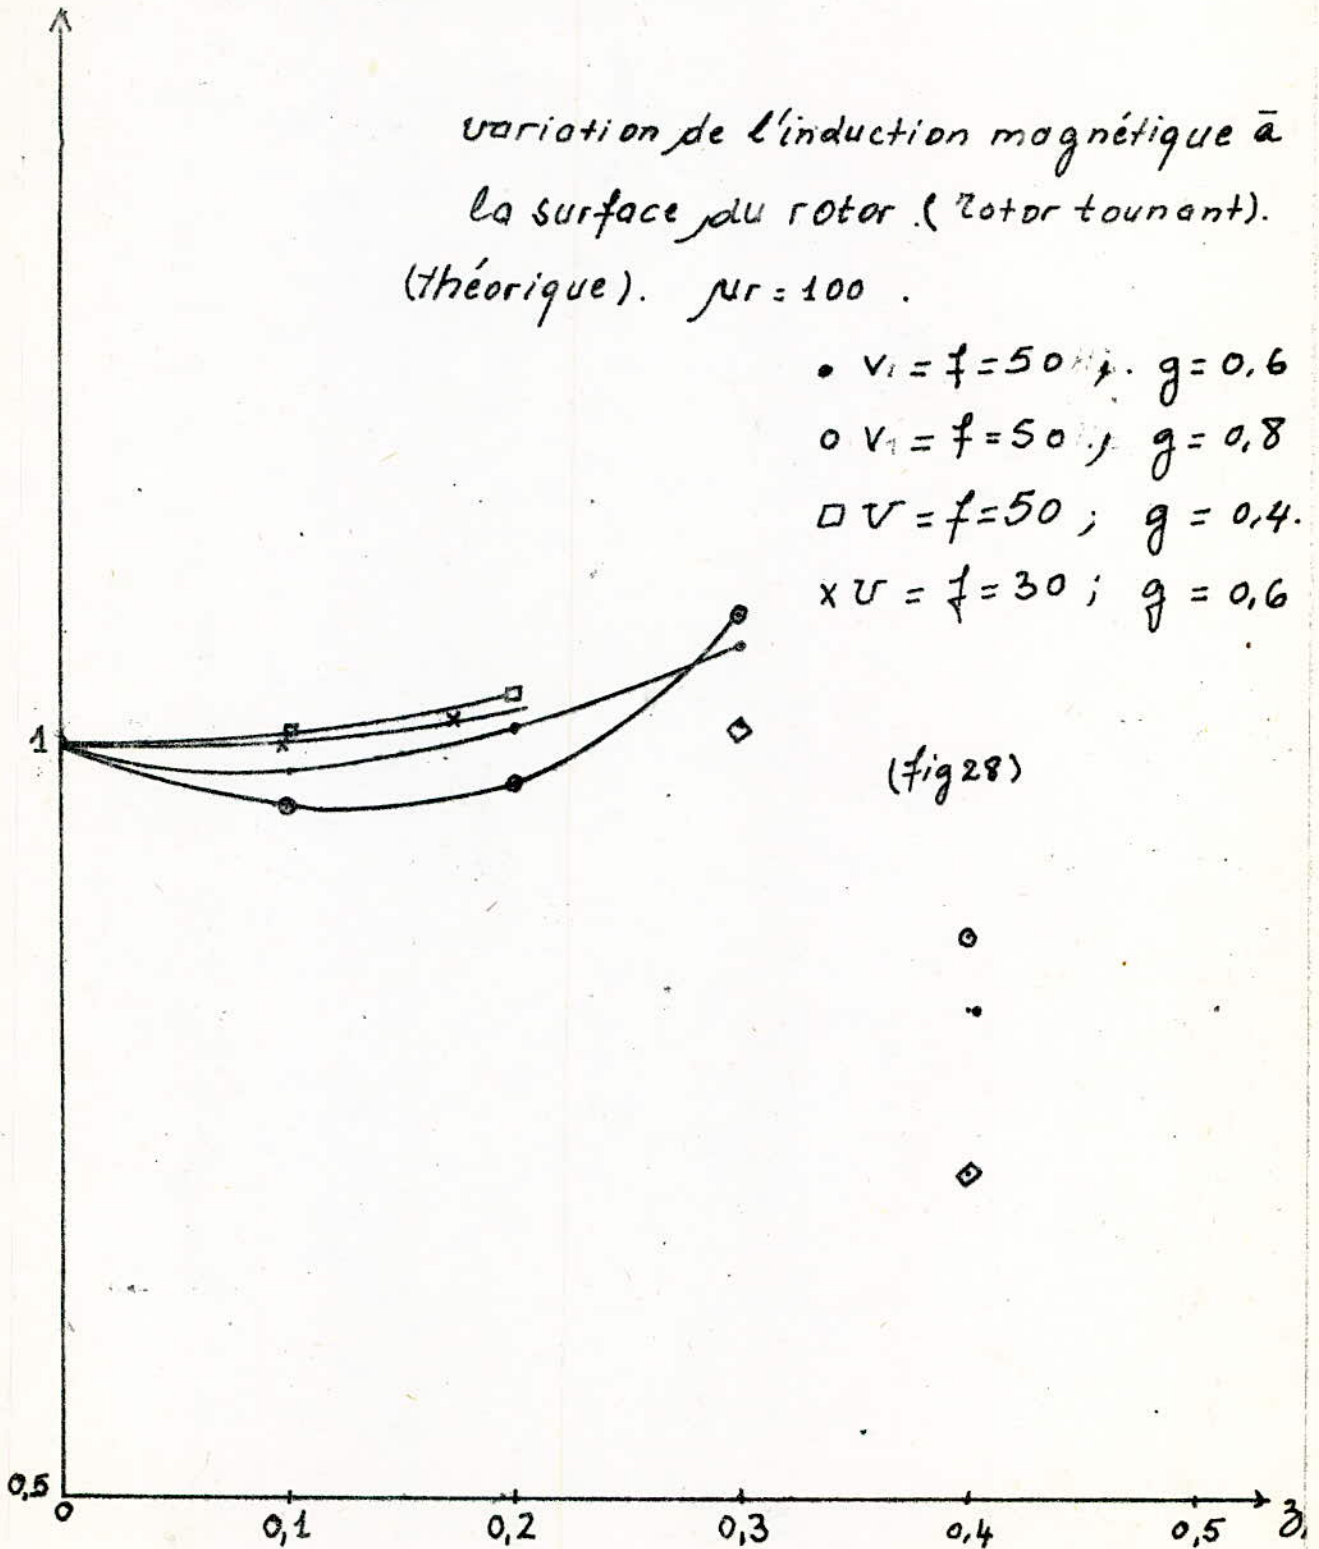 variation de l'induction magnétique à
la surface du rotor. (rotor tounant).
(théorique). μr = 100 .
• V₁ = f = 50 ; g = 0,6
o V₁ = f = 50 ; g = 0,8
□ V = f = 50 ; g = 0,4.
x V = f = 30 ; g = 0,6
1
(fig 28)
0,5
0 0,1 0,2 0,3 0,4 0,5 z